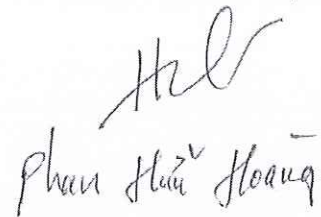 Phan Hữu Hoàng